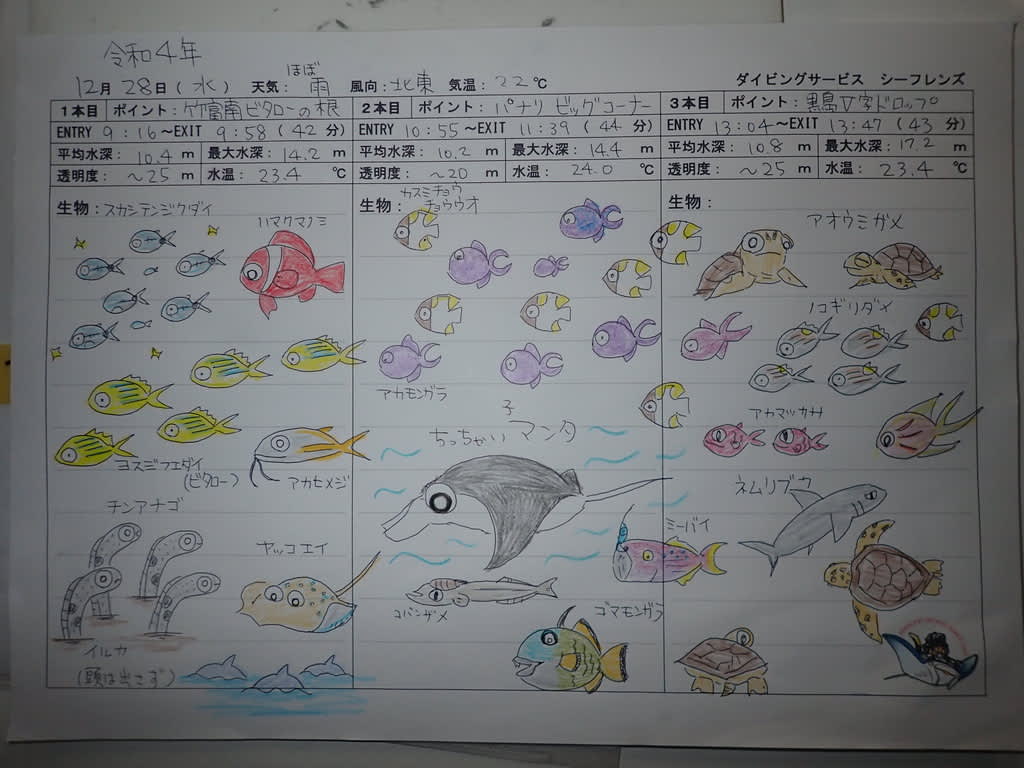 令和4年
12月 28日(水) 天気: ほぼ 雨 風向: 北東 気温: 22℃ ダイビングサービス シーフレンズ
1本目 ポイント: 竹富南ビタローの根
ENTRY 9:16~EXIT 9:58 (42 分)
平均水深: 10.4 m 最大水深: 14.2 m
透明度: ~25 m 水温: 23.4 ℃
生物: スカシテンジクダイ
ハマクマノミ
ヨスジフエダイ
(ビタロー)
アカヒメジ
チンアナゴ
ヤッコエイ
イルカ
(頭は出さず)
2本目 ポイント: パナリ ビッグコーナー
ENTRY 10:55~EXIT 11:39 (44 分)
平均水深: 10.2 m 最大水深: 14.4 m
透明度: ~20 m 水温: 24.0 ℃
生物: カスミチョウ
チョウウオ
アカモンガラ
子
ちっちゃいマンタ
ミーバイ
コバンザメ
ゴマモンガラ
3本目 ポイント: 黒島V字ドロップ
ENTRY 13:04~EXIT 13:47 (43 分)
平均水深: 10.8 m 最大水深: 17.2 m
透明度: ~25 m 水温: 23.4 ℃
生物:
アオウミガメ
ノコギリダイ
アカマツカサ
ネムリブカ